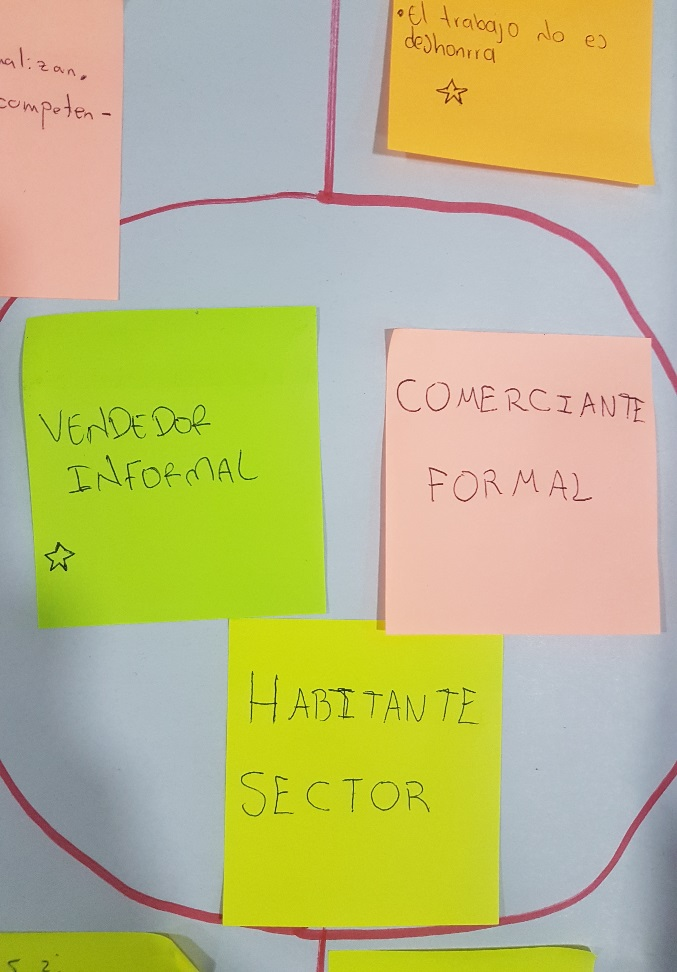 alizan.
competen-
• El trabajo no es
deshonrra
VENDEDOR
INFORMAL
COMERCIANTE
FORMAL
HABITANTE
SECTOR